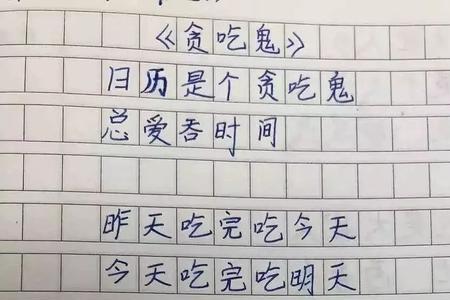 《贪吃鬼》
日历是个贪吃鬼
总爱吞时间
昨天吃完吃今天
今天吃完吃明天